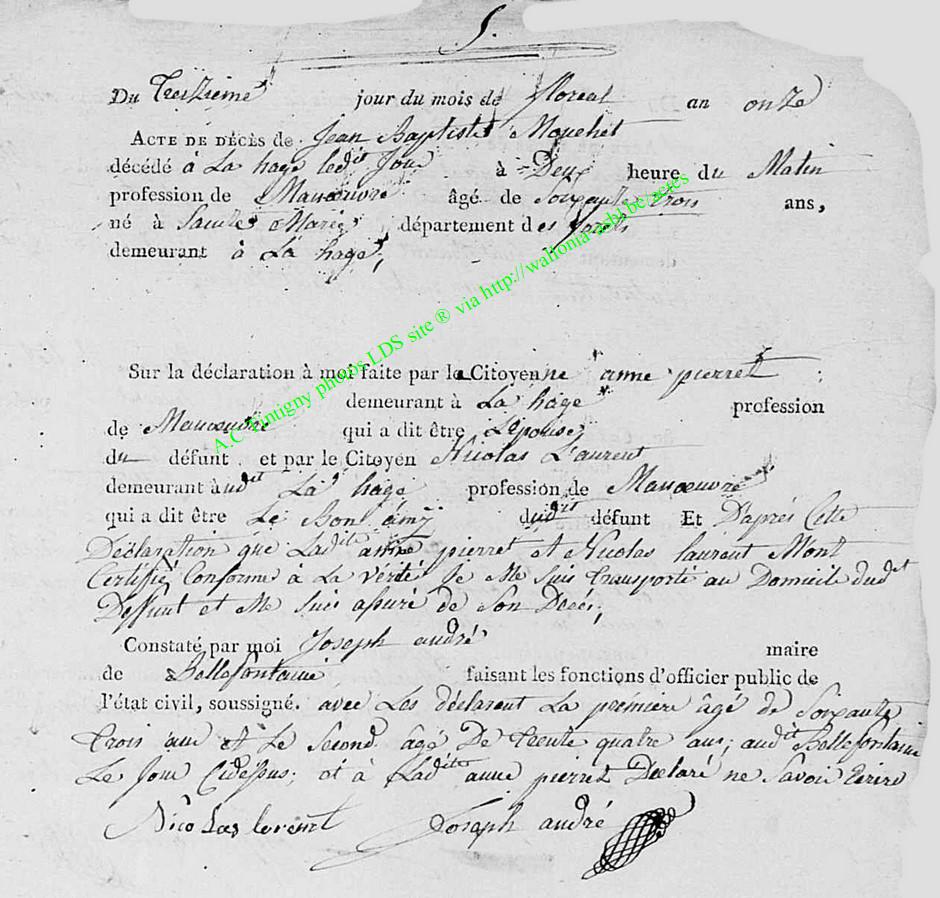 5.
Du treizieme jour du mois de floreal an onze
ACTE DE DÉCÈS de Jean Baptiste Mouchet
décédé à La hage led.it Jour à Deux heure du Matin
profession de Manœuvre âgé de Soixante trois ans,
né à Sainte Marie, département des forêts
demeurant à La hage;
Sur la déclaration à moi faite par la Citoyenne anne pierret
demeurant à La hage profession
de Manœuvre qui a dit être L'epouse
du défunt et par le Citoyen Nicolas Laurent
demeurant aud.it La hage profession de Manœuvre
qui a dit être Le Bon amy dud.it défunt Et D'après Cette
Déclaration que Lad.ite anne pierret et Nicolas laurent Mont
Certifié Conforme à La vérité, Je Me Suis transporté au Domicile dud.it
Deffunt et Me Suis assuré de Son Decés;
Constaté par moi Joseph andré maire
de Bellefontaine faisant les fonctions d'officier public de
l'état civil, soussigné. avec Les déclarent La première âgé de Soixante
trois ans et Le Second âgé De trente quatre ans; aud.it Bellefontaine
Le Jour Cidessus; et à Ladite anne pierret Déclaré ne Savoir Ecrire
Nicolas lorent Joseph andré
A.C. Tintigny photos LDS site ® via http://wallonia-asbl.be/actes